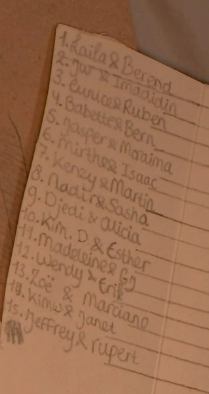 1. Laila & Berend
2. Jur & Imdidin
3. Eunice & Ruben
4. Babette & Bern
5. Jasper & Moraima
6. Mirthe & Isaac
7. Kenzy & Martin
8. Nadir & Sasha
9. Djedi & alicia
10. Kim. D & Esther
11. Madeleine &
12. Wendy & Erik
13. Zoë & Marciano
14. Kim w & Janet
15. Jeffrey & rupert